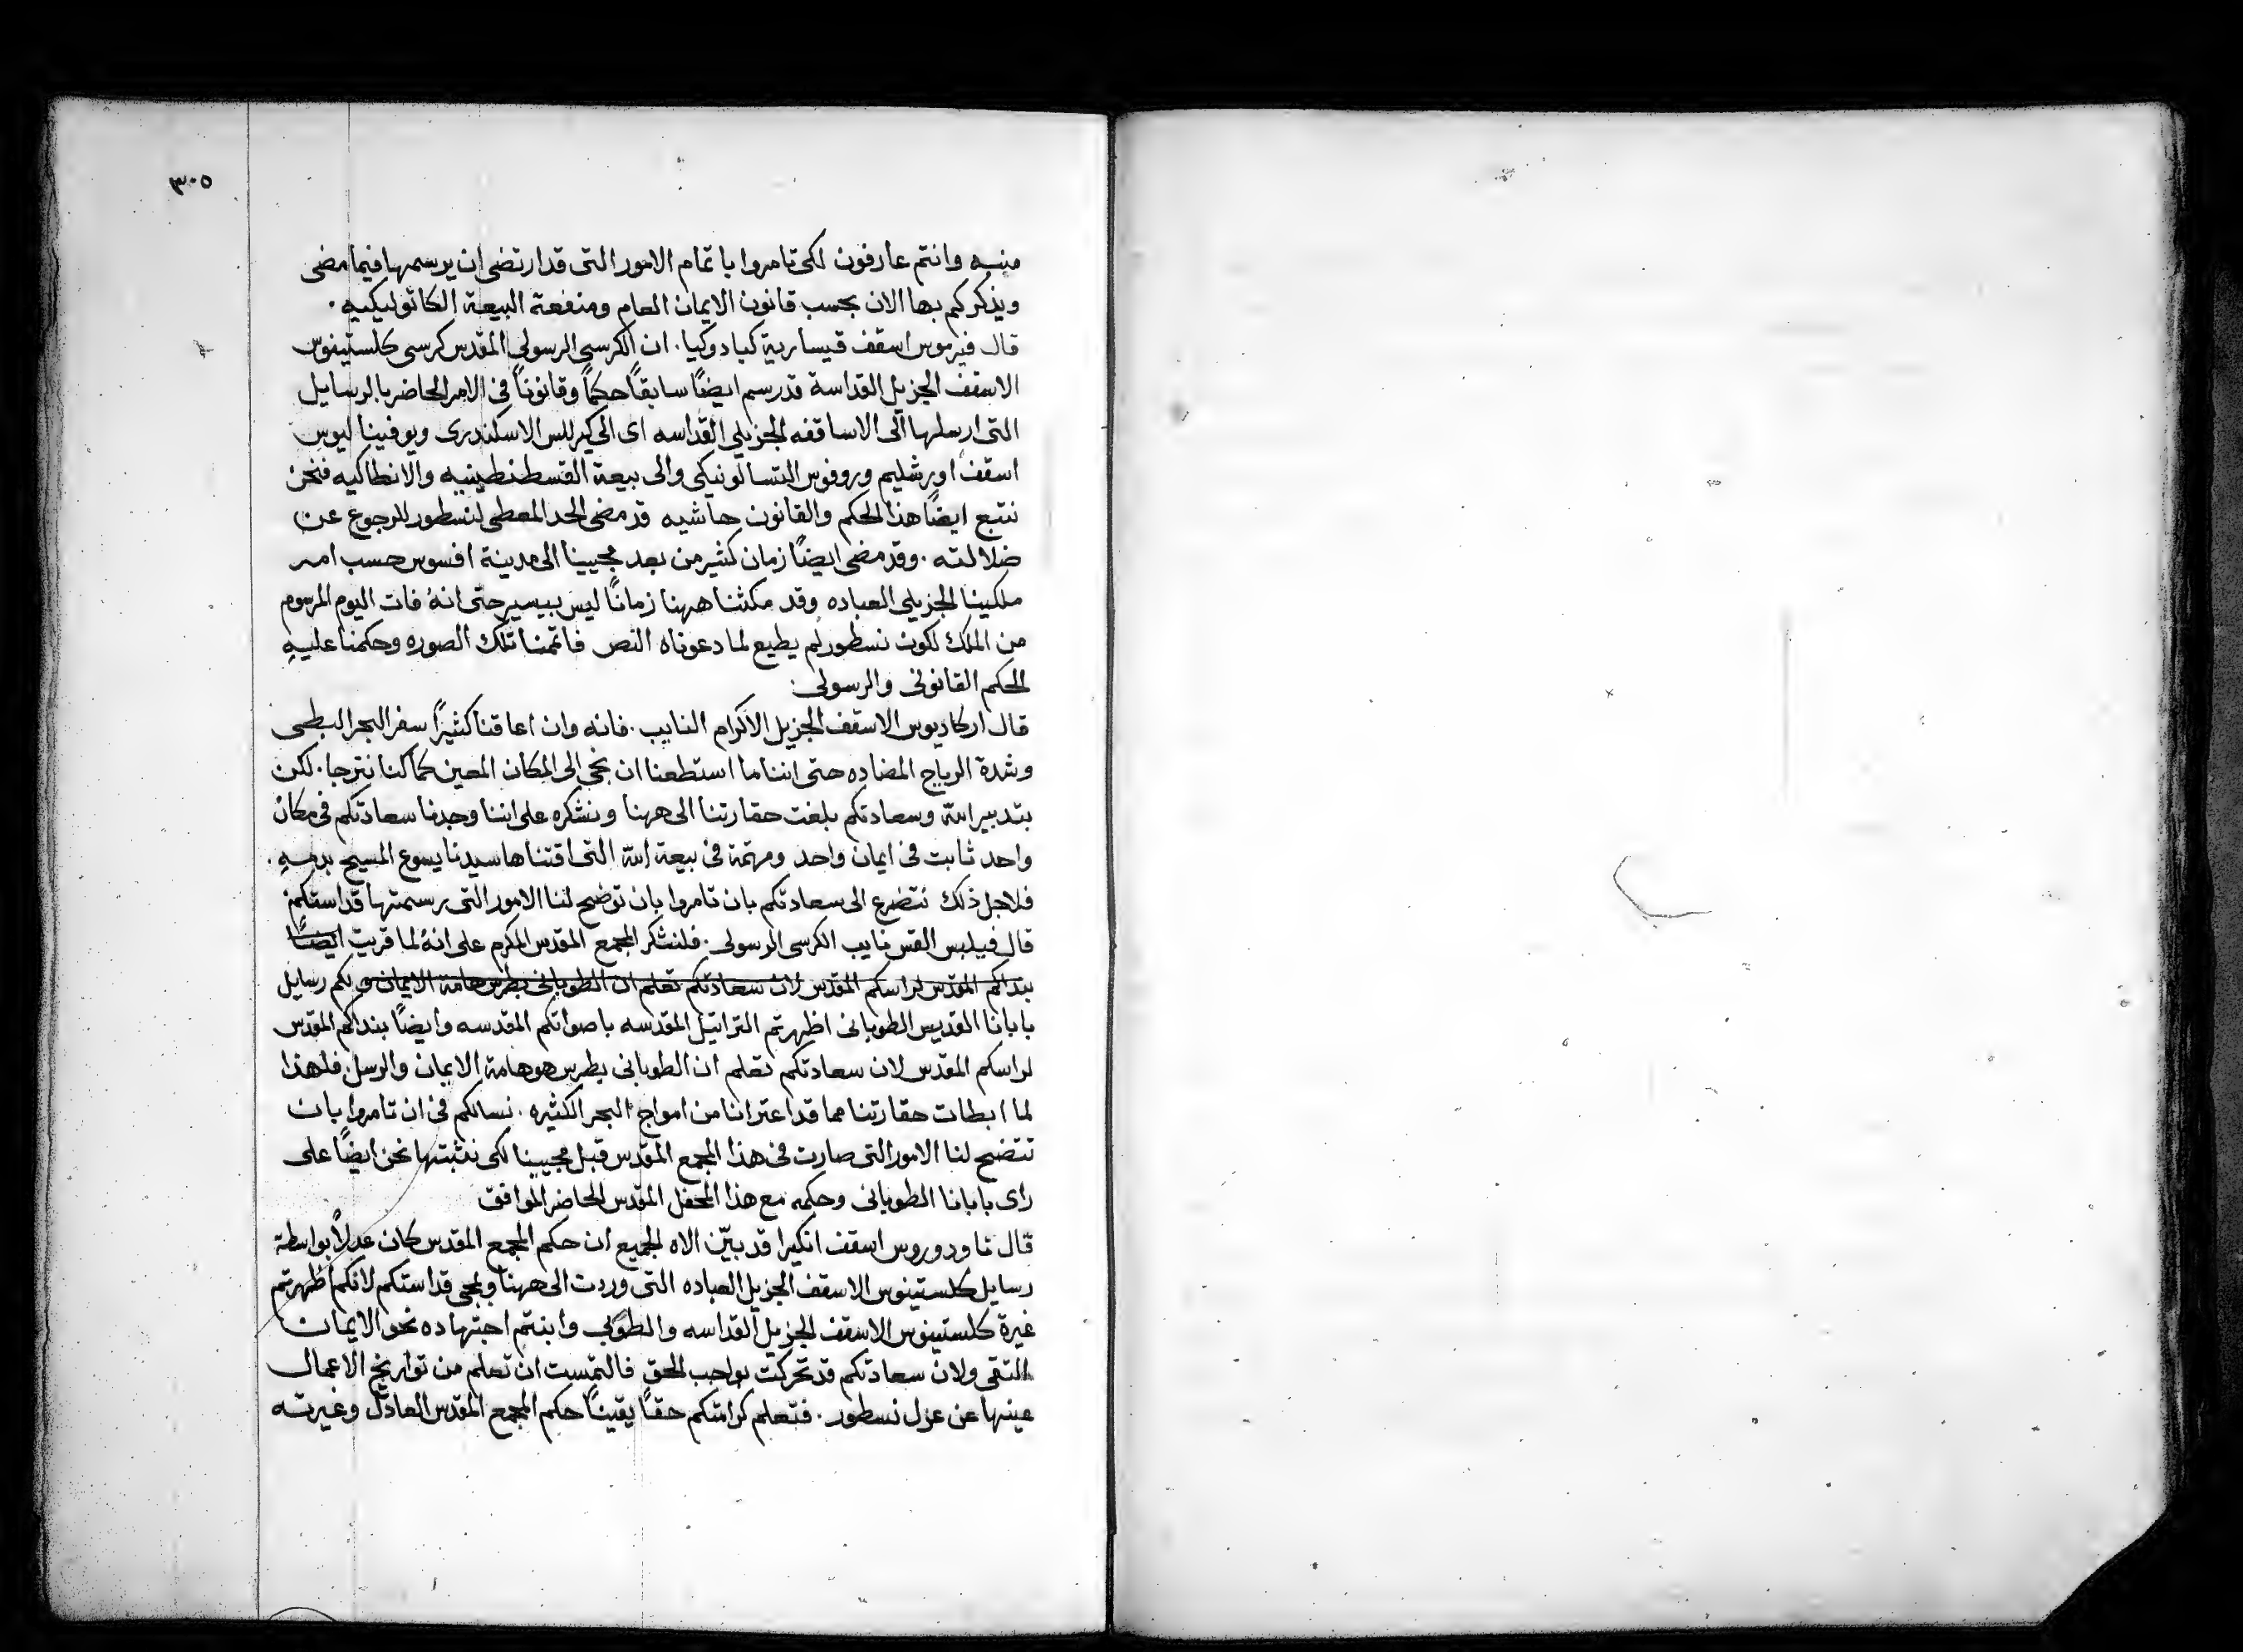 ٣٠٥
منبه وانتم عارفون لكى تامروا باتمام الامور التى قد ارتضى ان يرسمها فيما مضى
ويذكركم بها الان بحسب قانون الايمان العام ومنفعة البيعة الكاتوليكيه ·
قال فيرموس اسقف قيسارية كبادوكيا · ان الكرسى الرسولى المقدس كرسى كلستينوس
الاسقف الجزيل القداسة قد رسم ايضًا سابقًا حكمًا وقانونًا فى الامر الحاضر بالرسايل
التى ارسلها الى الاساقفه الجزيلي القداسه اى الى كيرللس الاسكندرى ويوفيناليوس
اسقف اورشليم وروفوس التسالونيكى والى بيعة القسطنطينيه والانطاكيه فنحن
نتبع ايضًا هذا الحكم والقانون حاشيه قد مضى الحد المعطى لنسطور للرجوع عن
ضلالته · وقد مضى ايضًا زمان كثير من بعد مجيينا الى مدينة افسوس حسب امر
ملكينا الجزيلى العباده وقد مكثنا ههنا زمانًا ليس بيسير حتى انهُ فات اليوم المرسوم
من الملك لكون نسطور لم يطيع لما دعوناه النص فاتممنا تلك الصوره وحكمنا عليهِ
الحكم القانونى والرسولى :
قال اركاديوس الاسقف الجزيل الاكرام النايب · فانه وان اعاقنا كثيرًا سفر البحر البطى
وشدة الرياح المضاده حتى اننا ما استطعنا ان نجى الى المكان المعين كما كنا نترجا · لكن
بتدبير الله وسعادتكم بلغت حقارتنا الى ههنا ونشكره على اننا وجدنا سعادتكم فى مكان
واحد ثابت فى ايمان واحد ومهتمة فى بيعة الله التى اقتناها سيدنا يسوع المسيح بدمهِ ·
فلاجل ذلك نتضرع الى سعادتكم بان تامروا بان توضح لنا الامور التى رسمتها قداستكم
قال فيلبس القس نايب الكرسى الرسولى · فلنشكر المجمع المقدس المكرم على انهُ لما قريت ايضًا
بنداكم المقدس لراسكم المقدس لان سعادتكم تعلم ان الطوبانى بطرس هامة الايمان و لكم رسايل
بابانا القديس الطوبانى اظهرتم التراتيل المقدسه باصواتكم المقدسه وايضًا بنداكم المقدس
لراسكم المقدس لان سعادتكم تعلم ان الطوبانى بطرس هو هامة الايمان والرسل · فلهذا
لما ابطات حقارتنا مما قد اعترانا من امواج البحر الكثيره · نسالكم فى ان تامروا بان
تتضح لنا الامور التى صارت فى هذا المجمع المقدس قبل مجيينا لكى نثبتها نحن ايضًا على
راى بابانا الطوبانى وحكمه مع هذا المحفل المقدس الحاضر الموافق
قال ثاودوروس اسقف انكيرا قد بيّن الاه الجميع ان حكم المجمع المقدس كان عدلًا بواسطة
رسايل كلستينوس الاسقف الجزيل العباده التى وردت الى ههنا وبمجى قداستكم لانكم اظهرتم
غيرة كلستينوس الاسقف الجزيل القداسه والطوبى وابنتم اجتهاده نحو الايمان
التقى ولان سعادتكم قد تحركت بواجب الحق فالتمست ان تعلم من تواريخ الاعمال
عينها عن عزل نسطور · فتعلم كرامتكم حقًا يقينًا حكم المجمع المقدس العادل وغيرته